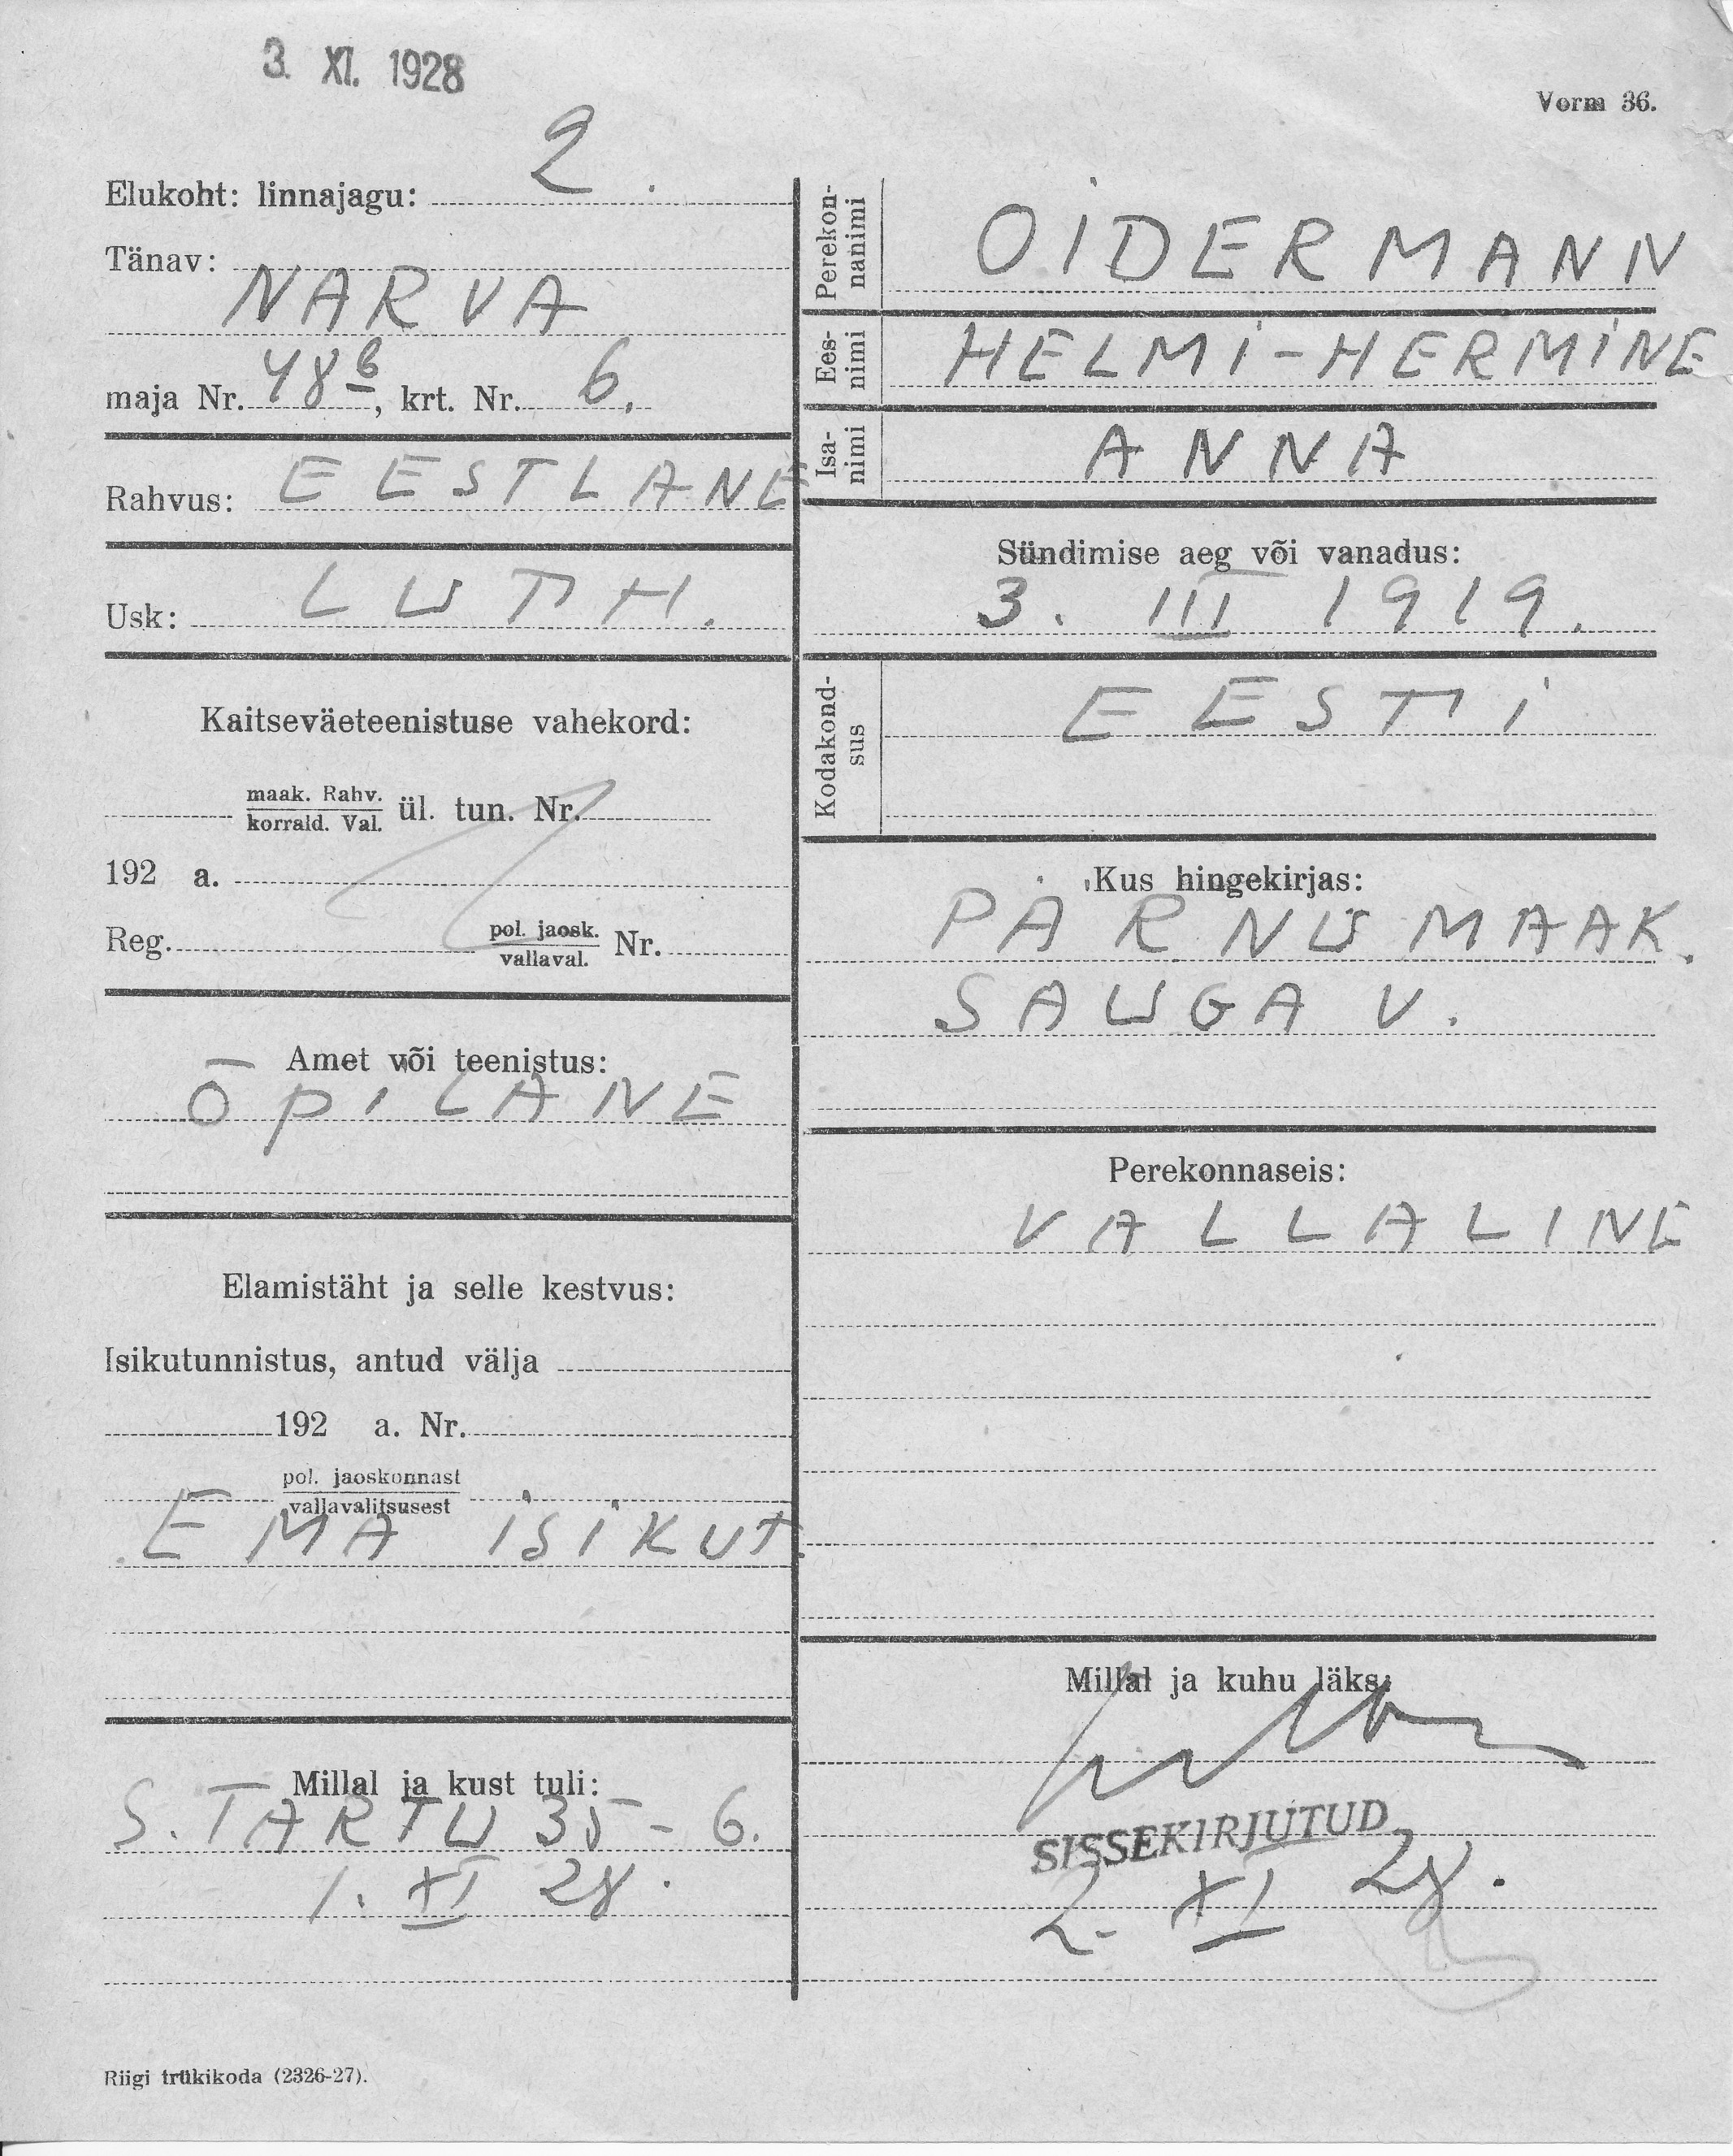 3. XI. 1928
Vorm 36.
Elukoht: linnajagu: 2.
Tänav:
NARVA
maja Nr. 48 b, krt. Nr. 6.
Rahvus: EESTLANE
Usk: LUTH.
Kaitseväeteenistuse vahekord:
maak. Rahv.
korrald. Val. ül. tun. Nr.
192 a.
Reg. pol. jaosk.
vallaval. Nr.
Amet või teenistus:
ÕPILANE
Elamistäht ja selle kestvus:
Isikutunnistus, antud välja
192 a. Nr.
pol. jaoskonnast
vallavalitsusest
EMA ISIKUT.
Millal ja kust tuli:
S. TARTU 35-6.
1. XI 28.
Perekon-
nanimi OIDERMANN
Ees-
nimi HELMI-HERMINE
Isa-
nimi ANNA
Sündimise aeg või vanadus:
3. III 1919.
Kodakond-
sus EESTI
Kus hingekirjas:
PÄRNUMAAK.
SAUGA V.
Perekonnaseis:
VALLALINE
Millal ja kuhu läks:
SISSEKIRJUTUD
2. XI 28.
Riigi trükikoda (2326-27).